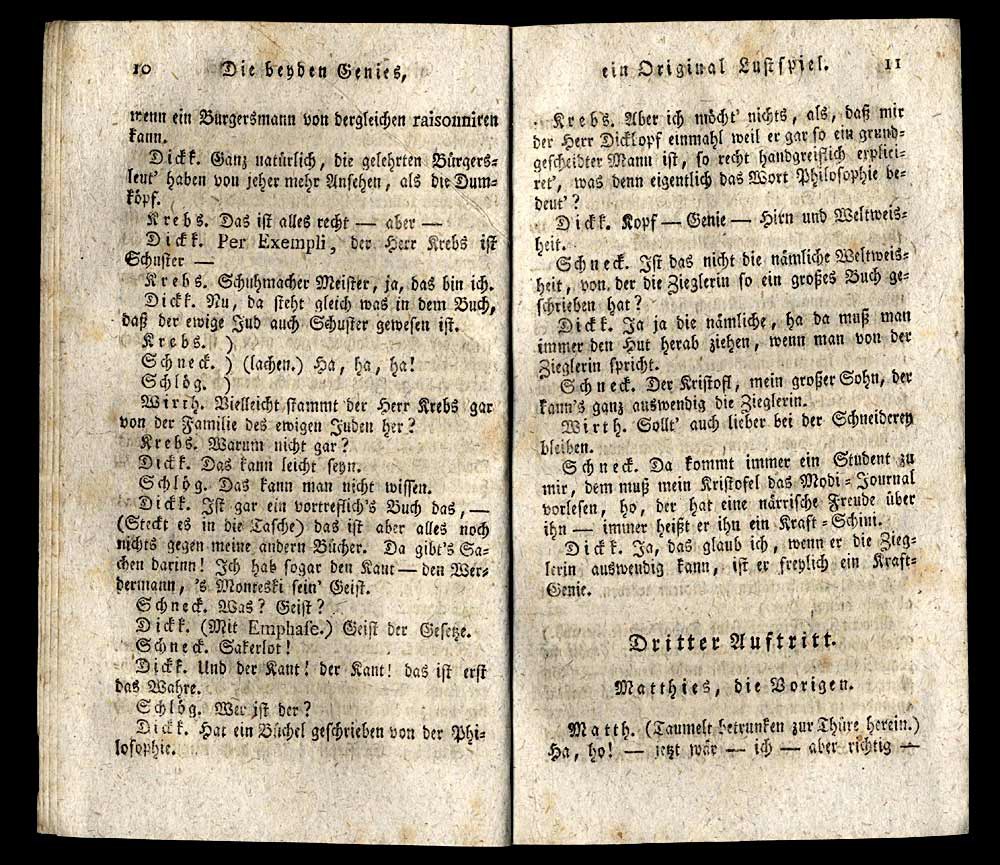 10 Die beyden Genies,
wenn ein Bürgersmann von dergleichen raisonniren
kann.
Dickk. Ganz natürlich, die gelehrten Bürgers=
leut' haben von jeher mehr Ansehen, als die Dum=
köpf.
Krebs. Das ist alles recht — aber —
Dickk. Per Exempli, der Herr Krebs ist
Schuster —
Krebs. Schuhmacher Meister, ja, das bin ich.
Dickk. Nu, da steht gleich was in dem Buch,
daß der ewige Jud auch Schuster gewesen ist.
Krebs. )
Schneck. ) (lachen.) Ha, ha, ha!
Schlög. )
Wirth. Vielleicht stammt der Herr Krebs gar
von der Familie des ewigen Juden her?
Krebs. Warum nicht gar?
Dickk. Das kann leicht seyn.
Schlög. Das kann man nicht wissen.
Dickk. Ist gar ein vortreflich's Buch das, —
(Steckt es in die Tasche) das ist aber alles noch
nichts gegen meine andern Bücher. Da gibt's Sa=
chen darinn! Ich hab sogar den Kant — den Wer=
dermann, 's Monteski sein' Geist.
Schneck. Was? Geist?
Dickk. (Mit Emphase.) Geist der Gesetze.
Schneck. Sakerlot!
Dickk. Und der Kant! der Kant! das ist erst
das Wahre.
Schlög. Wer ist der?
Dickk. Hat ein Büchel geschrieben von der Phi=
losophie.
ein Original Lustspiel. 11
Krebs. Aber ich möcht' nichts, als, daß mir
der Herr Dicklopf einmahl weil er gar so ein grund=
gescheidter Mann ist, so recht handgreiflich explici=
ret', was denn eigentlich das Wort Philosophie be=
deut'?
Dickk. Kopf — Genie — Hirn und Weltweis=
heit.
Schneck. Ist das nicht die nämliche Weltweis=
heit, von der die Zieglerin so ein großes Buch ge=
schrieben hat?
Dickk. Ja ja die nämliche, ha da muß man
immer den Hut herab ziehen, wenn man von der
Zieglerin spricht.
Schneck. Der Kristofl, mein großer Sohn, der
kann's ganz auswendig die Zieglerin.
Wirth. Sollt' auch lieber bei der Schneiderey
bleiben.
Schneck. Da kommt immer ein Student zu
mir, dem muß mein Kristofel das Modi=Journal
vorlesen, ho, der hat eine närrische Freude über
ihn — immer heißt er ihn ein Kraft=Schini.
Dickk. Ja, das glaub ich, wenn er die Zieg=
lerin auswendig kann, ist er freylich ein Kraft=
Genie.
Dritter Auftritt.
Matthies, die Vorigen.
Matth. (Taumelt betrunken zur Thüre herein.)
Ha, ho! — jetzt wär — ich — aber richtig —